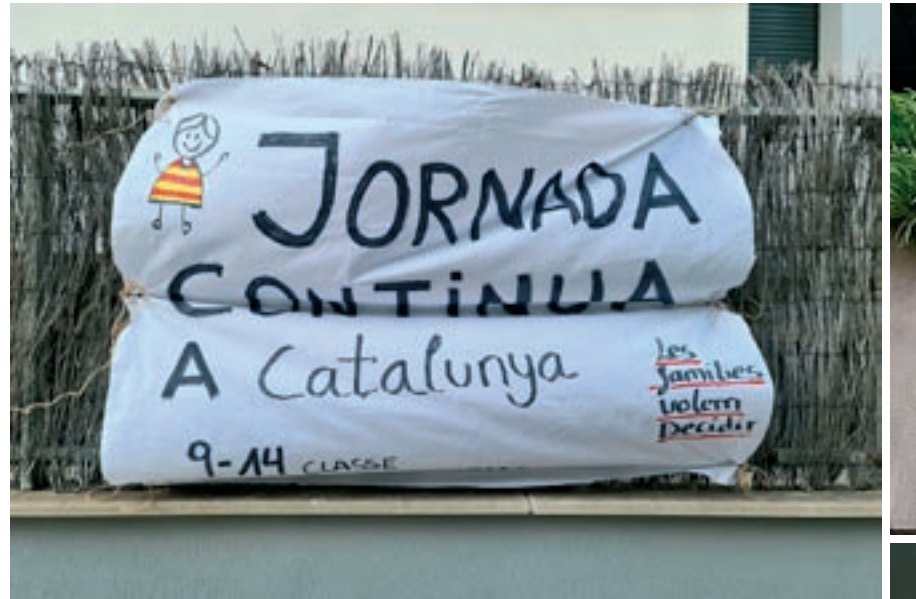 JORNADA
CONTiNUA
A Catalunya
Les
famílies
volem
Decidir
9-14 CLASSE